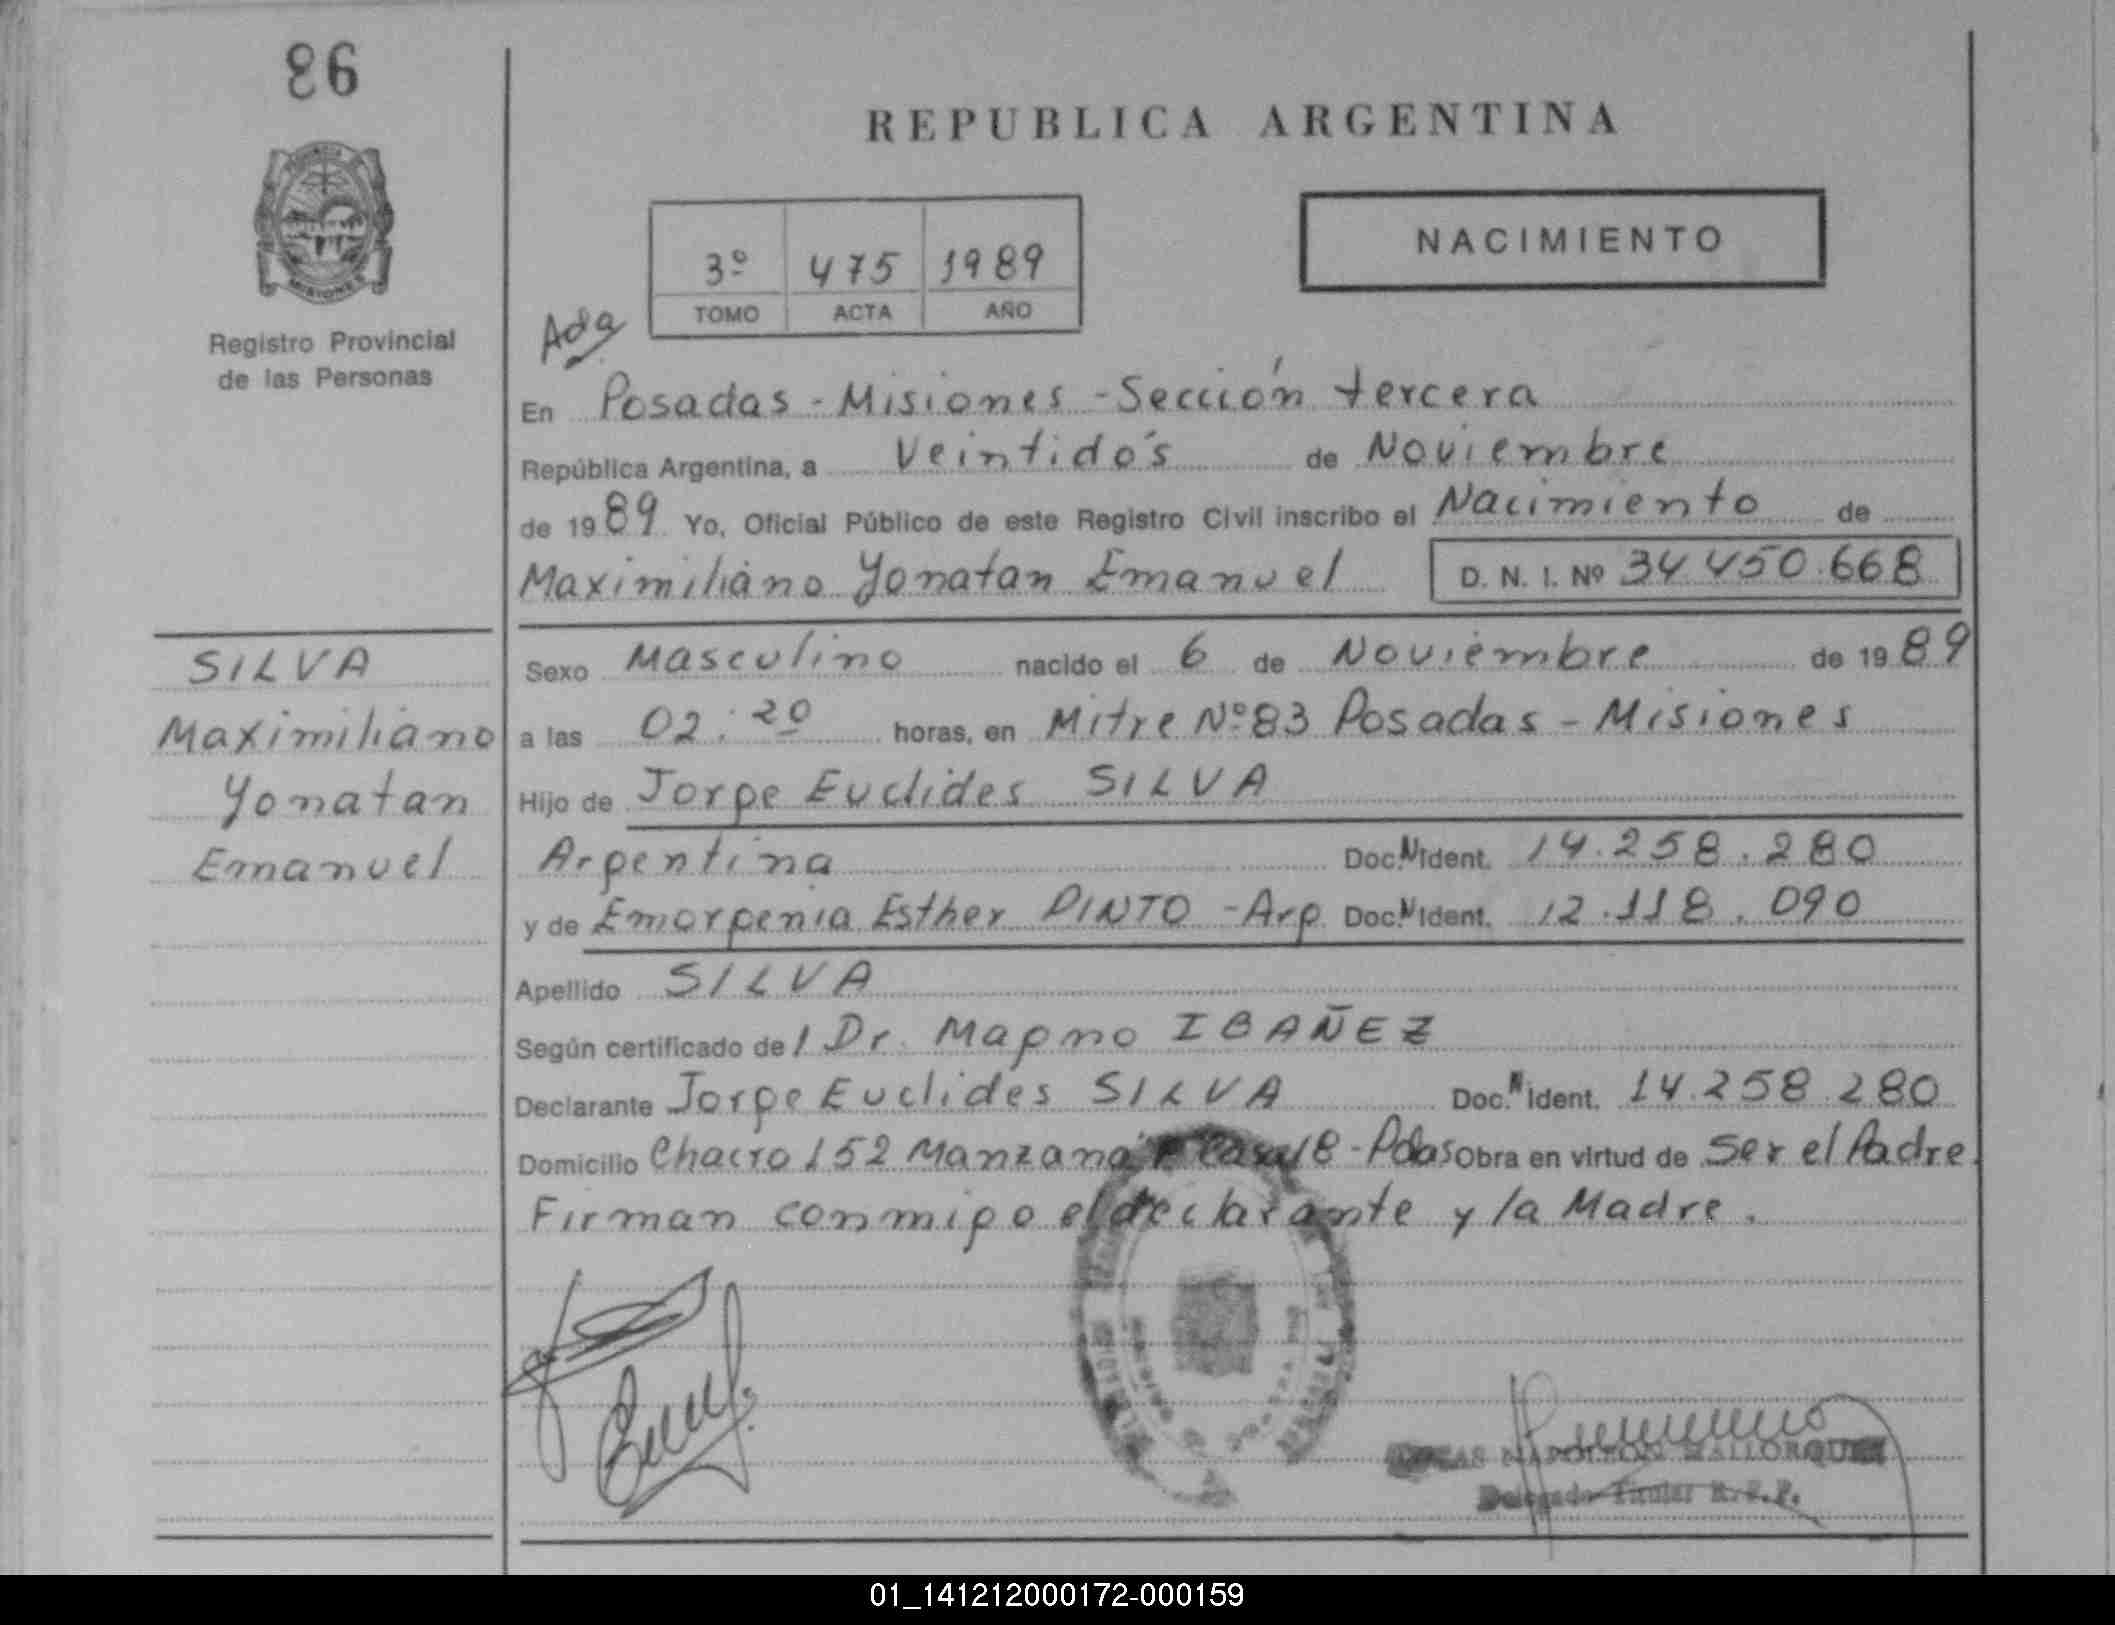 86
REPUBLICA ARGENTINA
3º 475 1989
TOMO ACTA AÑO
NACIMIENTO
MISIONES
Registro Provincial
de las Personas
Ada
En Posadas - Misiones - Sección tercera
República Argentina, a Veintidós de Noviembre
de 1989 Yo, Oficial Público de este Registro Civil inscribo el Nacimiento de
Maximiliano Yonatan Emanuel D. N. I. Nº 34.450.668
SILVA
Maximiliano
Yonatan
Emanuel
Sexo Masculino nacido el 6 de Noviembre de 1989
a las 02:20 horas, en Mitre Nº 83 Posadas - Misiones
Hijo de Jorge Euclides SILVA
Argentina Doc. N Ident. 14.258.280
y de Emorgenia Esther PINTO - Arg. Doc. N Ident. 12.118.090
Apellido SILVA
Según certificado de l Dr. Magno IBAÑEZ
Declarante Jorge Euclides SILVA Doc. N Ident. 14.258.280
Domicilio Chacra 152 Manzana Casa 18 - Pdas Obra en virtud de Ser el Padre.
Firman conmigo el declarante y la Madre.
NAPOLEON MALLORQUIN
Delegado Titular R.P.P.
01_141212000172-000159